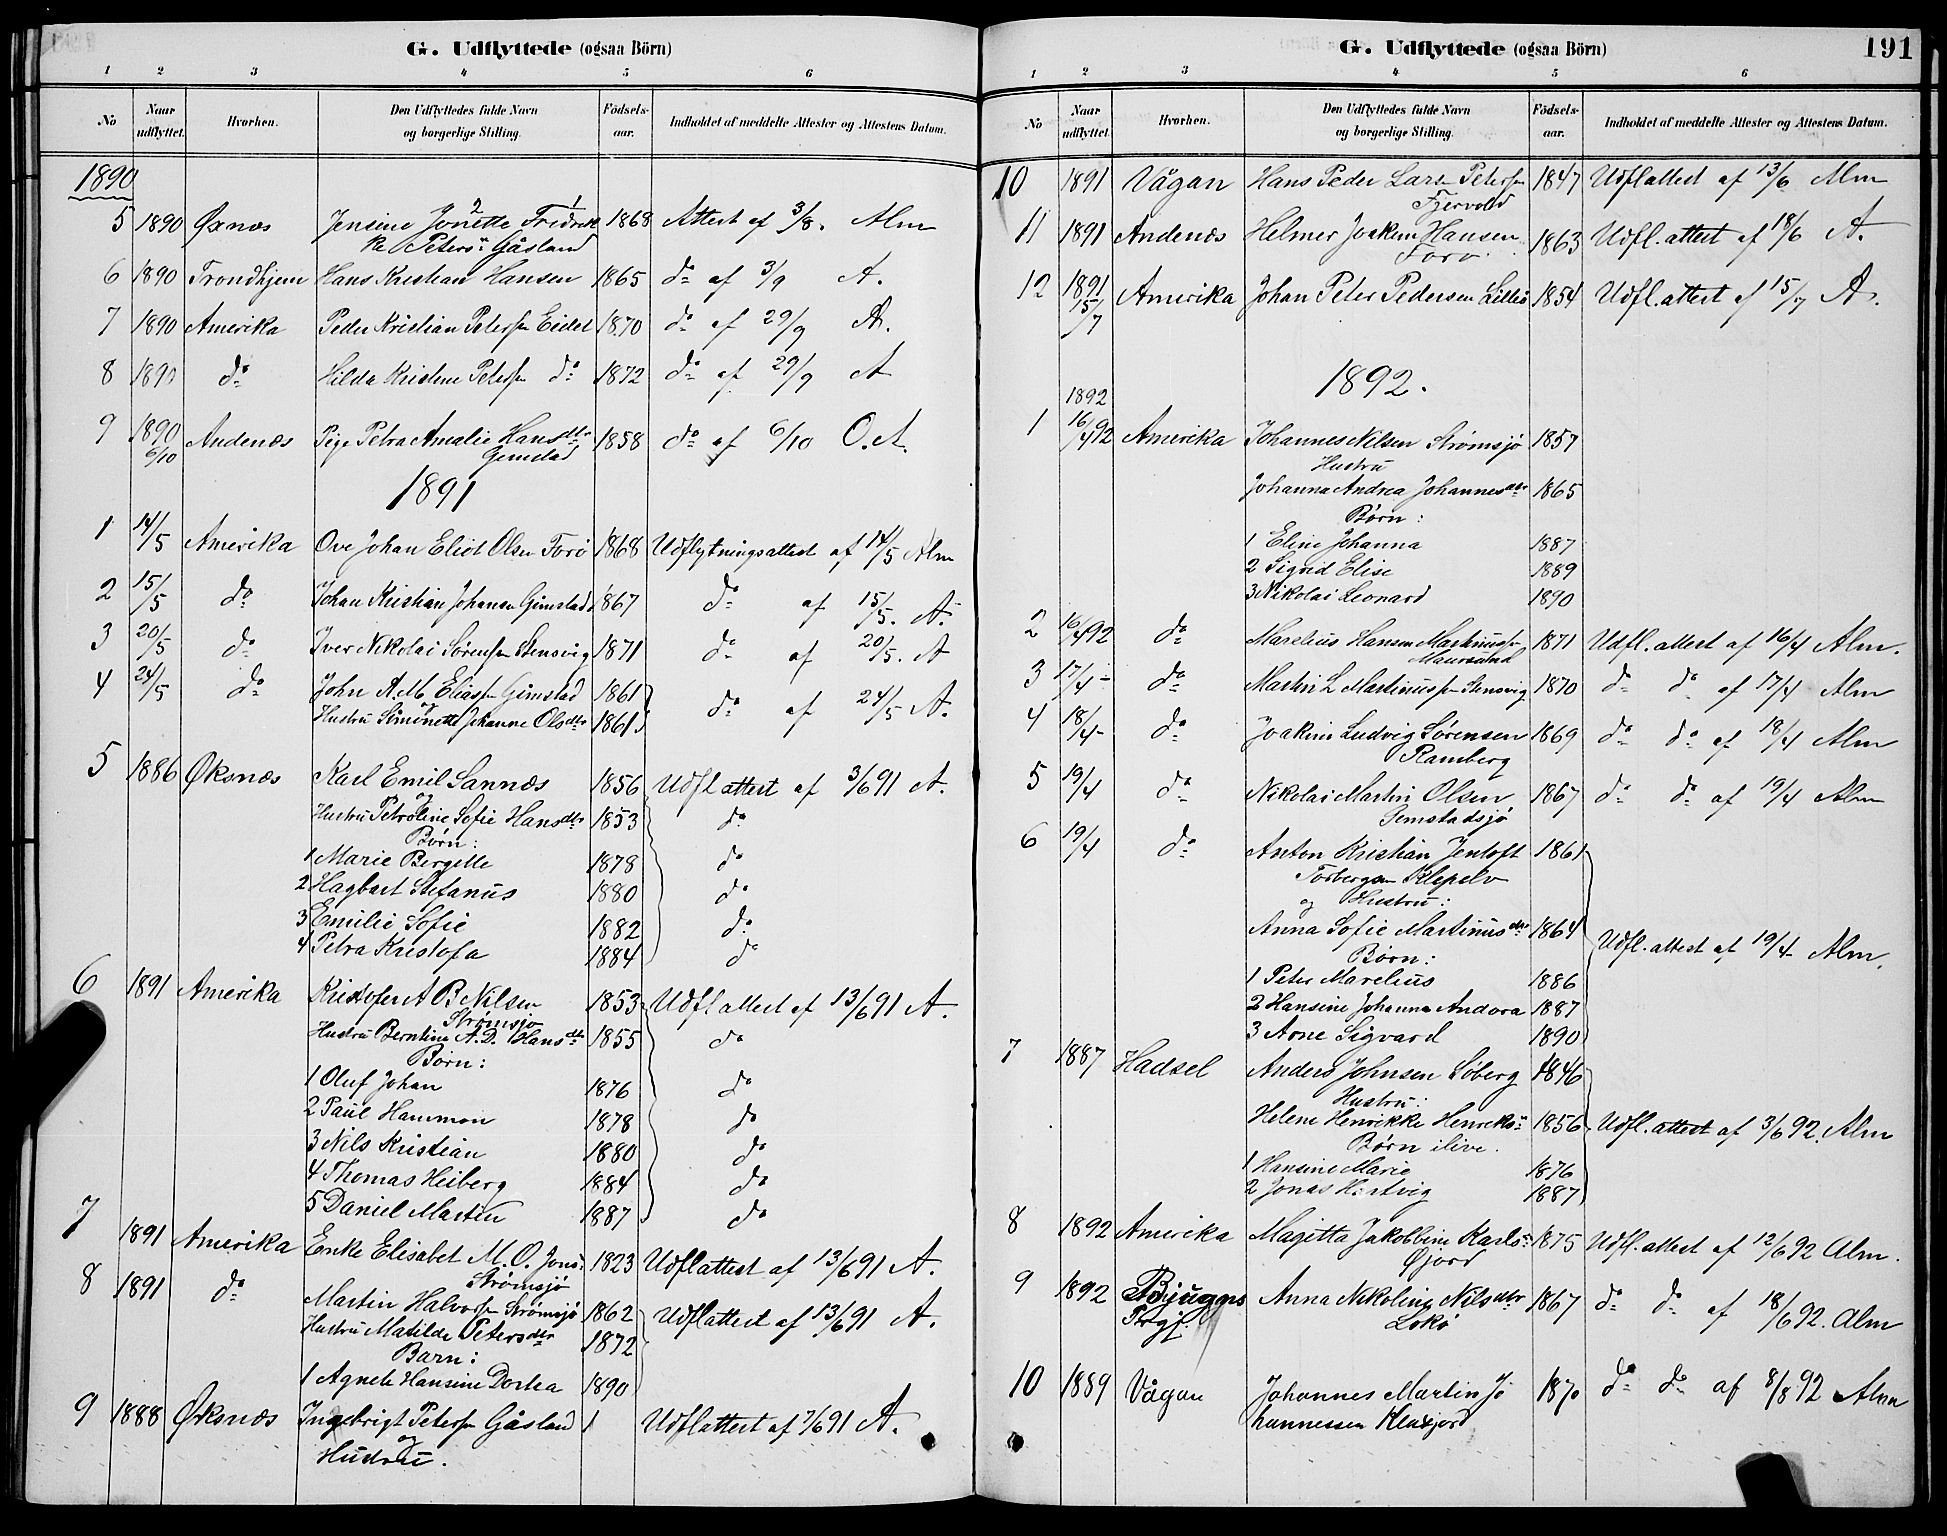 G. Udflyttede (ogsaa Börn)
1 2 3 4 5 6
No Naar udflyttet. Hvorhen. Den Udflyttedes fulde Navn og borgerlige Stilling. Födselsaar. Indholdet af meddelte Attester og Attestens Datum.
1890
5 1890 Øxnæs Jensine Jonette Fredrik 1868 Attest af 3/8. Alm
ke Peters= Gåsland
6 1890 Trondhjem Hans Kristian Hansen 1865 do af 3/9 A.
7 1890 Amerika Peder Kristian Petersen Eidet 1870 do af 29/9 A.
8 1890 do Hilda Kristine Petersen do 1872 do af 29/9 A
9 1890 6/10 Andenæs Pige Petra Amalie Hansdtr 1858 do af 6/10 O.A.
Gimstad
1891
1 14/5 Amerika Ove Johan Eliot Olsen Forø 1868 Udflytningsattest af 14/5 Alm
2 15/5 do Johan Kristian Johansen Gimstad 1867 do af 15/5. A.
3 20/5 do Iver Nikolai Sørensen Stensvig 1871 do af 20/5. A
4 24/5 do John A.M. Eliassen Gimstad 1861 do af 24/5 A.
og
Hustru Simonette Johanne Olsdtr 1861
5 1886 Øksnæs Karl Emil Sannæs 1856 Udfl attest af 3/6 91 A.
og
Hustru Petroline Sofie Hansdtr 1853 do
Børn:
1 Marie Bergitte 1878 do
2 Hagbart Stefanus 1880 do
3 Emilie Sofie 1882 do
4 Petra Kristofa 1884 do
6 1891 Amerika Kristofer A B Nilsen 1853 Udfl attest af 13/6 91 A.
Strømsjo
Hustru Berntine A.D. Hansdtr 1855 do
Børn:
1 Oluf Johan 1876 do
2 Paul Hammon 1878 do
3 Nils Kristian 1880 do
4 Thomas Heiberg 1884 do
5 Daniel Martin 1887 do
7 1891 Amerika Enke Elisabet M.O. Jons= 1823 Udflattest af 13/6 91 A.
Strømsjö
8 1891 do Martin Halvorsen Strømsjö 1862 Udflattest af 13/6 91 A.
Hustru Matilde Petersdtr 1872
Barn:
1 Agnete Hansine Dortea 1890
9 1888 Øksnæs Ingebrigt Petersen Gåsland 1 Udflattest af 7/6 91 A.
og
Hustru.
G. Udflyttede (ogsaa Börn) 191
1 2 3 4 5 6
No Naar udflyttet. Hvorhen. Den Udflyttedes fulde Navn og borgerlige Stilling. Födselsaar. Indholdet af meddelte Attester og Attestens Datum.
10 1891 Vågan Hans Peder Lars= Petersen 1847 Udflattest af 13/6 Alm
Fjervold
11 1891 Andenæs Helmer Joakim Hansen 1863 Udfl. attest af 18/6 A.
Forø
12 1891 15/7 Amerika Johan Peter Pedersen Lillø 1854 Udfl. attest af 15/7 A.
1892.
1892
1 16/4 92 Amerika Johannes Nilsen Strømsjö 1857
Hustru
Johanna Andrea Johannesdtr 1865
Børn:
1 Eline Johanna 1887
2 Sigrid Elise 1889
3 Nikolai Leonard 1890
2 16/4 92 do Marelius Hansen Martinussen 1871 Udfl. attest af 16/4 Alm.
Maursund
3 17/4 - do Martin L Martinussen Stensvig 1870 do do af 17/4 Alm
4 18/4 - do Joakim Ludvig Sørensen 1869 do do af 18/4 Alm
Ramberg
5 19/4 do Nikolai Martin Olsen 1867 do do af 19/4 Alm
Gimstadsjø
6 19/4 do Anton Kristian Jentoft 1861
Torbergsen Klepelv
og Hustru:
Anna Sofie Martinusdtr 1864 Udfl. attest af 19/4 Alm.
Børn:
1 Peter Marelius 1886
2 Hansine Johanna Andora 1887
3 Arne Sigvard 1890
7 1887 Hadsel Anders Johnsen Söberg 1846
Hustru:
Helene Henrikke Henriks= 1856 Udfl. attest af 3/6 92. Alm
Børn ilive.
1 Hansine Marie 1876
2 Jonas Hartvig 1887
8 1892 Amerika Magitta Jakobbine Karls= 1875 Udfl. attest af 12/6 92 Alm.
Øjord
9 1892 Bjugns Anna Nikoline Nilsdtr 1867 do do af 18/6 92. Alm
Prgj. Lokø
10 1889 Vågan Johannes Martin Jo 1870 do do af 8/8 92 Alm
hannessen Klaksjord